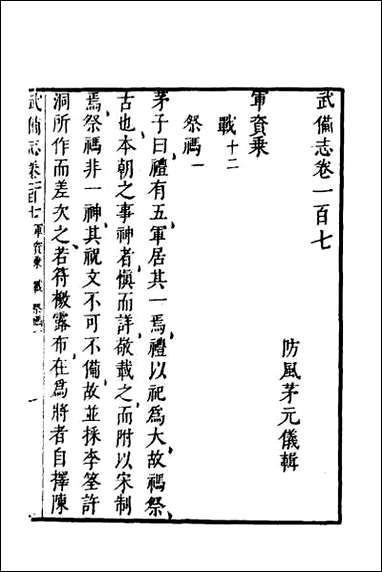 武備志卷一百七
防風茅元儀輯
軍資乗
戰十二
祭禡一
茅子曰禮有五軍居其一焉禮以祀為大故禡祭
古也本朝之事神者愼而詳敬載之而附以宋制
焉祭禡非一神其祝文不可不備故並採李筌許
洞所作而差次之若符檄露布在為將者自擇陳
武備志卷一百七 軍資乗 戰 祭禡一 一